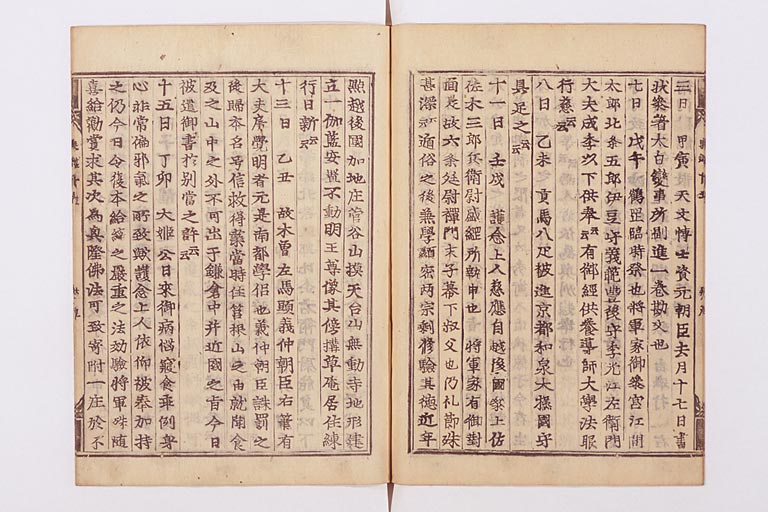 三日 甲寅 天文博士資元朝臣去月十七日書
状參著太白變事所副進一卷勘文也
七日 戊午 鶴岡臨時祭也將軍家御參宮江間
太郎北条五郎伊豆守義範豐後守季光江左衛門
大夫成季以下供奉云云有御經供養導師大學法眼
行慈云云
八日 乙未之貢馬八疋被進京都和泉大掾國守
具足之云云
十一日 壬戌 護念上人慈應自越後國參上佐
佐木三郎兵衛尉盛經所執申也 將軍家有御對
面是故六条廷尉禪門末子幕下叔父也仍礼節殊
甚深云云遁俗之後兼學顯密兩宗剩修驗其德近年
點越後國加地庄菅谷山摸天台山無動寺地形建
立一伽藍安置不動明王尊像其傍搆草庵居住練
行日新云云
十三日 乙丑 故木曽左馬頭義仲朝臣右筆有
大夫房覺明者元是南都學侶也義仲朝臣誅罰之
後歸本名号信救得業當時住筥根山之由就聞食
及之山中之外不可出于鎌倉中并近國之旨今日
被遣御書於別當之許云云
十五日 丁卯 大姫公日來御病惱寢食乖例身
心非常偏邪氣之所致歟護念上人依仰被奉加持
之仍今日令復本給誠之嚴重之法効驗將軍殊随
喜給勸賞求其次為興隆佛法可致寄附一庄於不